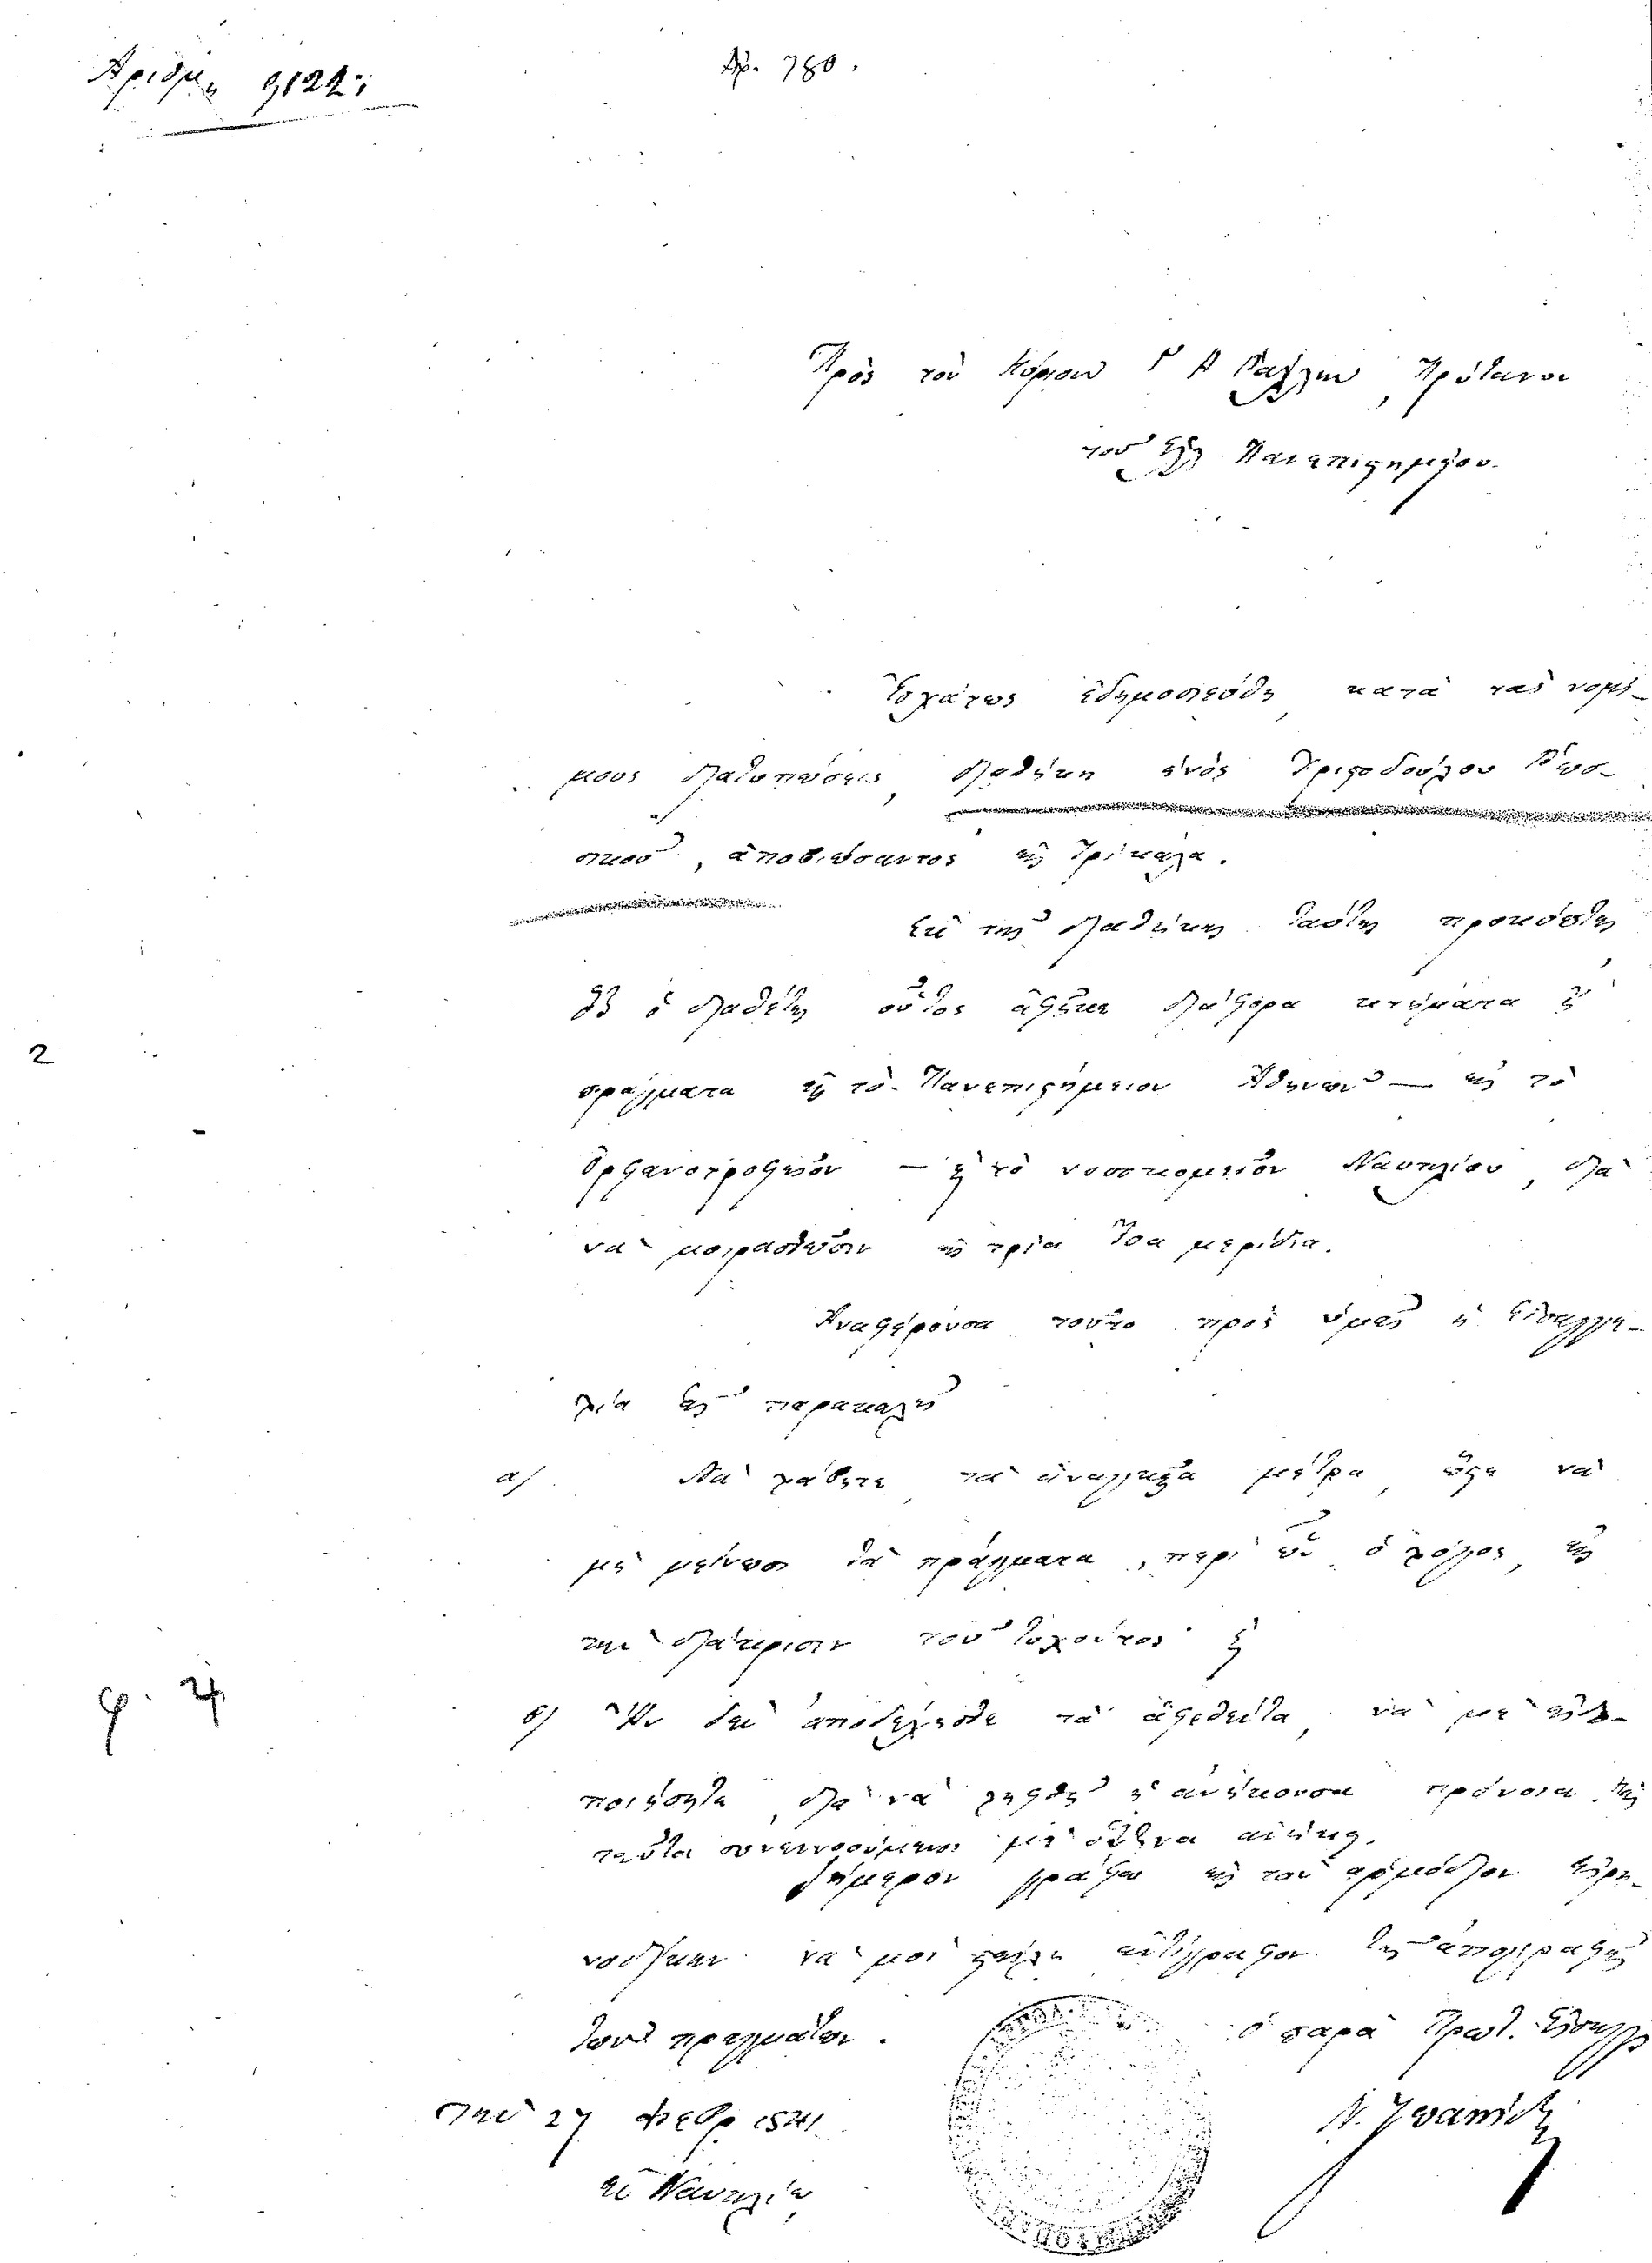 Ἀριθμ. 9122:
Ἀρ. 780.
Πρὸς τὸν Κύριον Γ Α Ῥάλλην, Πρύτανιν
τοῦ Ἑλλ. Πανεπιστημίου.
Ἐσχάτως ἐδημοσιεύθη, κατὰ τὰς νομί-
μους διατυπώσεις, διαθήκη ἑνὸς Χριστοδούλου
ἀποβιώσαντος εἰς Τρίκαλα.
Ἐκ τῆς διαθήκης ταύτης προκύπτει,
ὅτι ὁ διαθέτης οὗτος ἀφῆκε διάφορα κτήματα καὶ
πράγματα εἰς τὸ Πανεπιστήμειον Ἀθηνῶν — εἰς τὸ
Ὀρφανοτροφεῖον — καὶ τὸ νοσοκομεῖον Ναυπλίου, διὰ
νὰ μοιρασθῶσιν εἰς τρία ἴσα μερίδια.
Ἀναφέρουσα τοῦτο πρὸς ὑμᾶς ἡ Εἰσαγγε-
λία σᾶς παρακαλεῖ
α) Νὰ λάβητε τὰ ἀναγκαῖα μέτρα, ὥστε νὰ
μὴ μείνωσι τὰ πράγματα, περὶ ὧν ὁ λόγος, εἰς
τὴν διάκρισιν τοῦ τυχόντος καὶ
β) Ἂν δὲν ἀποδέχεσθε τὰ ἀφεθέντα, νὰ μὲ εἰδο-
ποιήσητε, διὰ νὰ ληφθῇ ἡ ἀνήκουσα πρόνοια εἰς
ταῦτα συνεννοούμενοι μὲ ὅντινα ἀνήκει.
Σήμερον γράφω εἰς τὸν ἁρμόδιον εἰρη-
νοδίκην νὰ μοὶ στείλῃ ἀντίγραφον τῆς ἀπογραφῆς
τῶν πραγμάτων.
Ὁ παρὰ Πρωτ. Εἰσαγγ
Τὴν 27 Φεβρ 1841
ἐν Ναυπλίῳ
2
φ. 4